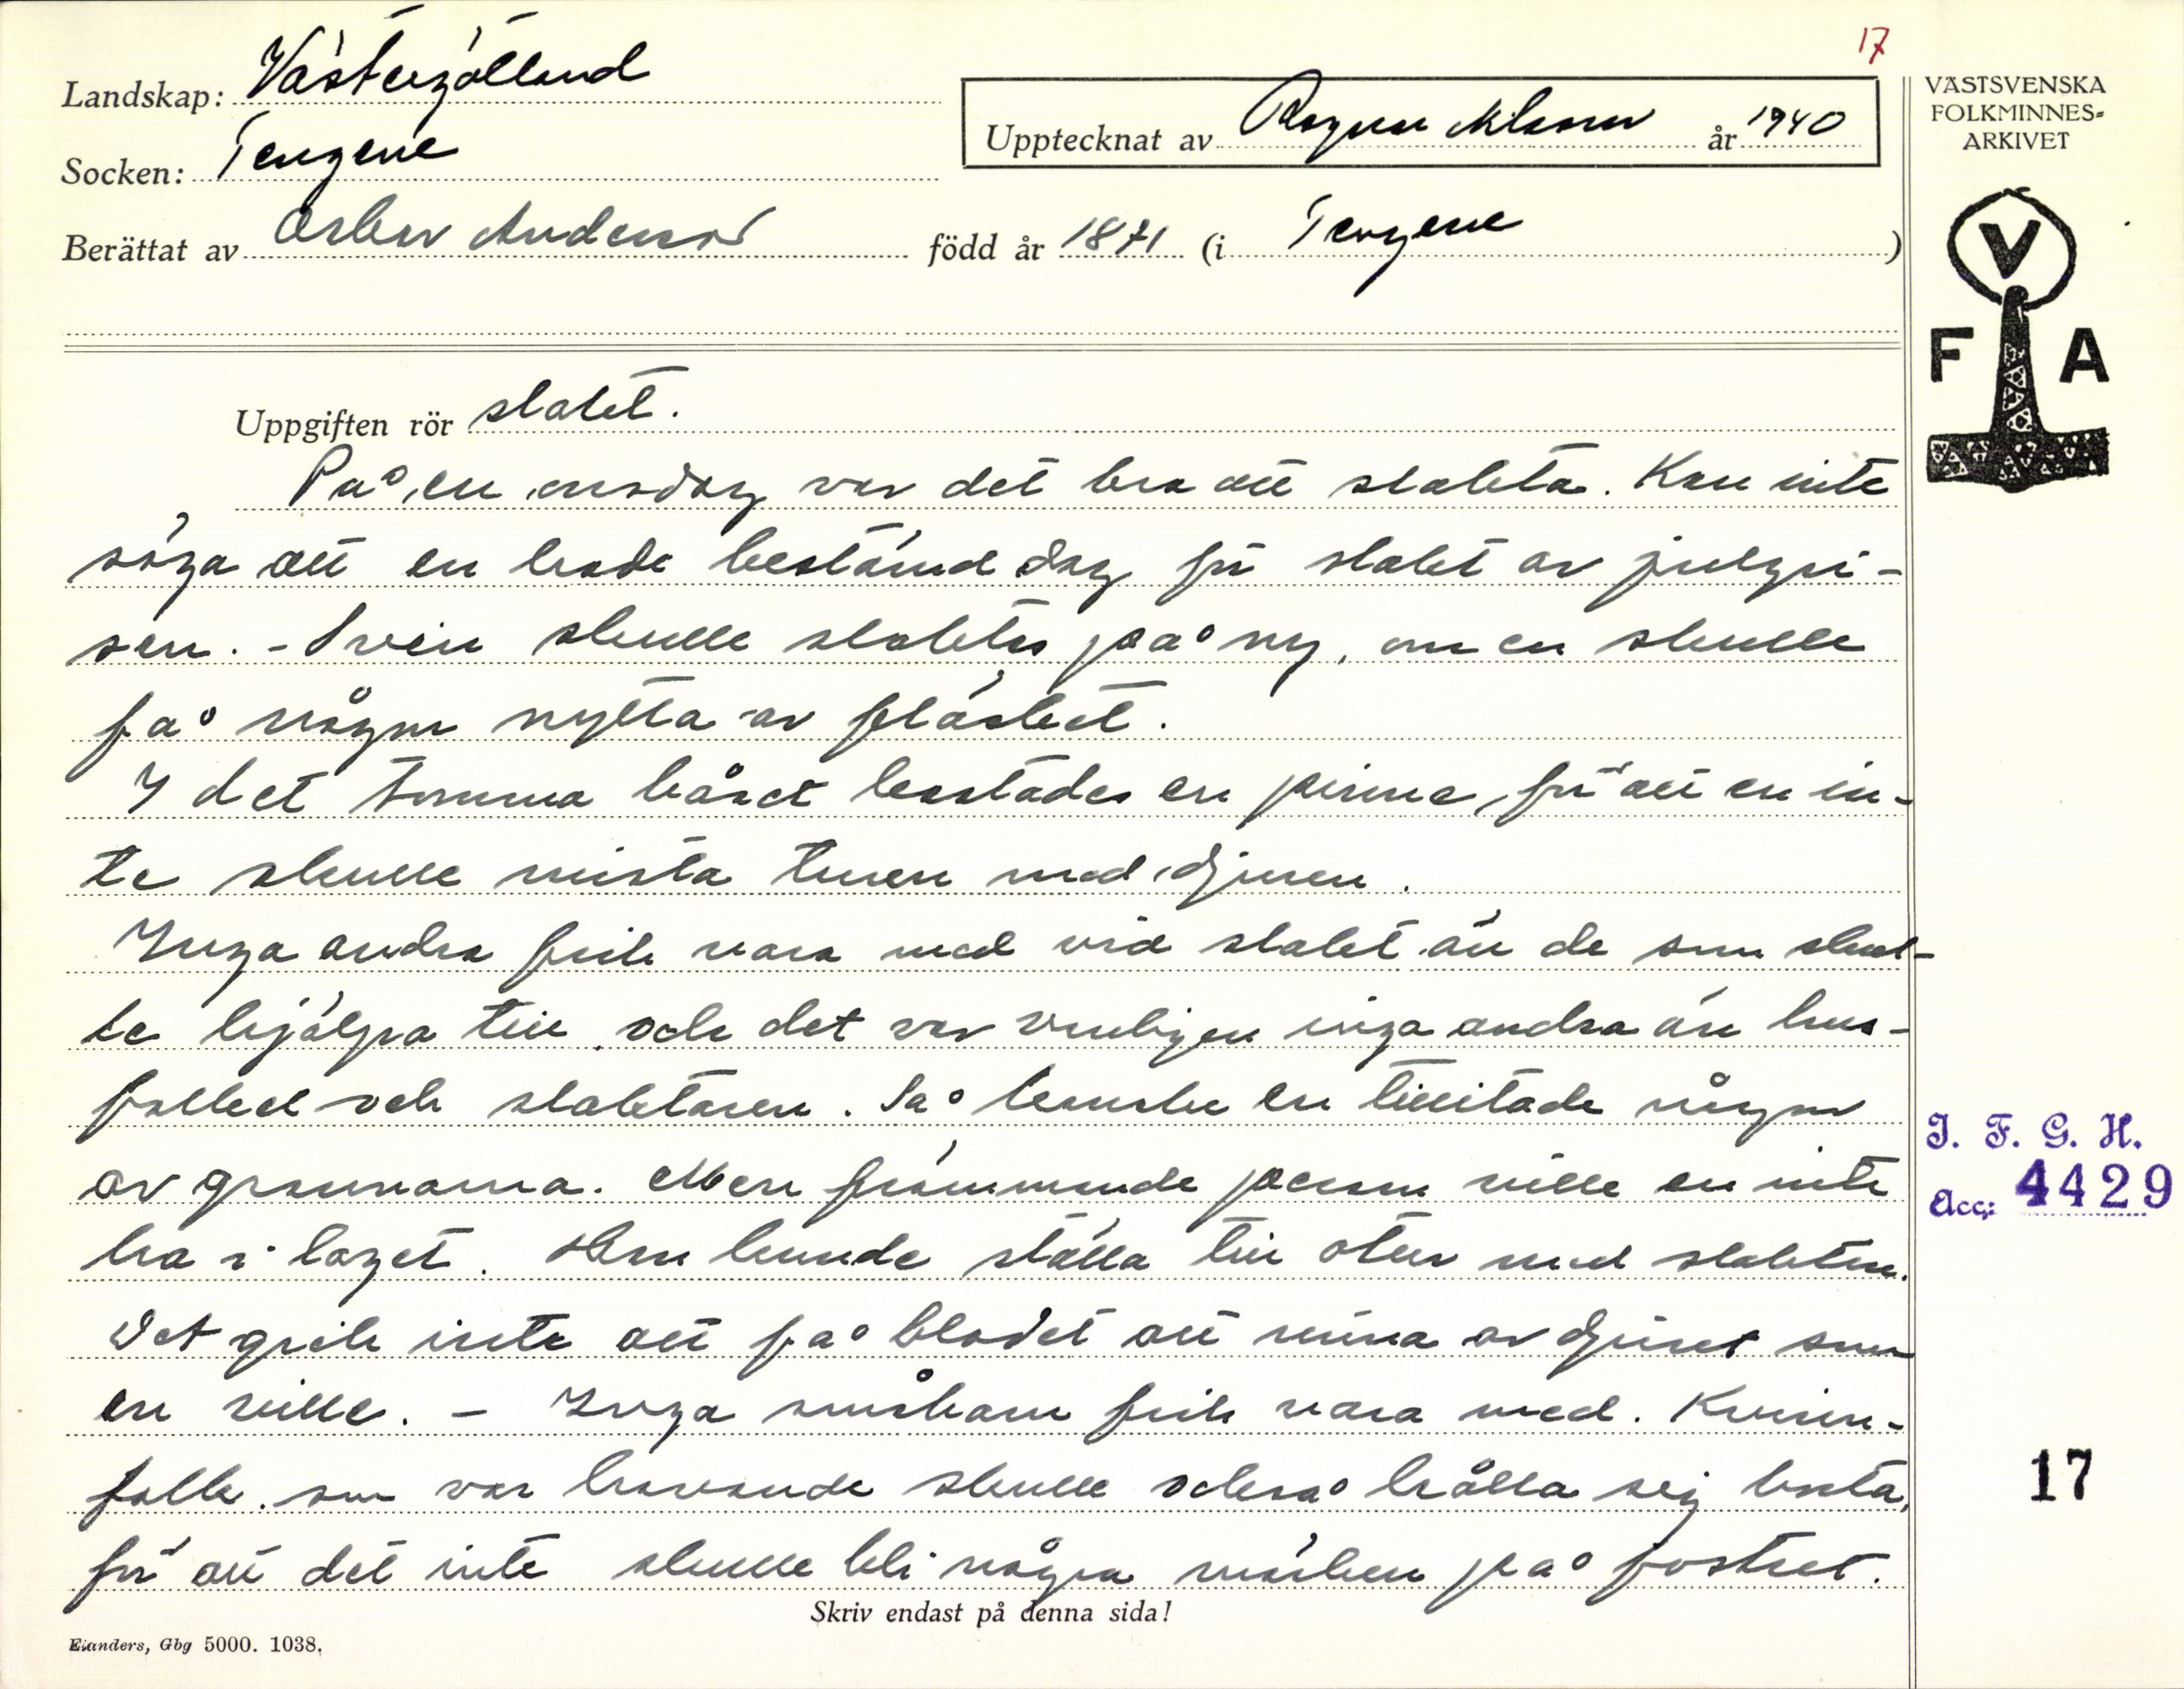 17
Landskap: Västergötland
Socken: Tengene
Upptecknat av Ragnar Nilsson år 1940
Berättat av Oskar Andersson född år 1871 (i Tengene)
VÄSTSVENSKA
FOLKMINNES-
ARKIVET
V
F A
Uppgiften rör slakt.
På en onsdag var det bra att slakta. Kan inte
säga att en hade bestämd dag för slakt av julgri-
sen. - Svin skulle slaktas på ny, om en skulle
få någon nytta av fläsket.
I det tomma båset kastades en pinne, för att en in-
te skulle mista turen med djuren.
Inga andra fick vara med vid slakt än de som skul-
le hjälpa till, och det var vanligen inga andra än hus-
folket och slaktaren. Så kanske en tillitade någon
av grannarna. Men främmande person ville en inte
ha i laget. Han kunde ställa till otur med slakten.
Det gick inte att få blodet att rinna av djuret som
en ville. - Inga småbarn fick vara med. Kvinn-
folk, som var havande skulle också hålla sig borta,
för att det inte skulle bli några märken på fostret.
I. F. G. H.
Acc: 4429
17
Skriv endast på denna sida!
Elanders, Gbg 5000. 1038.